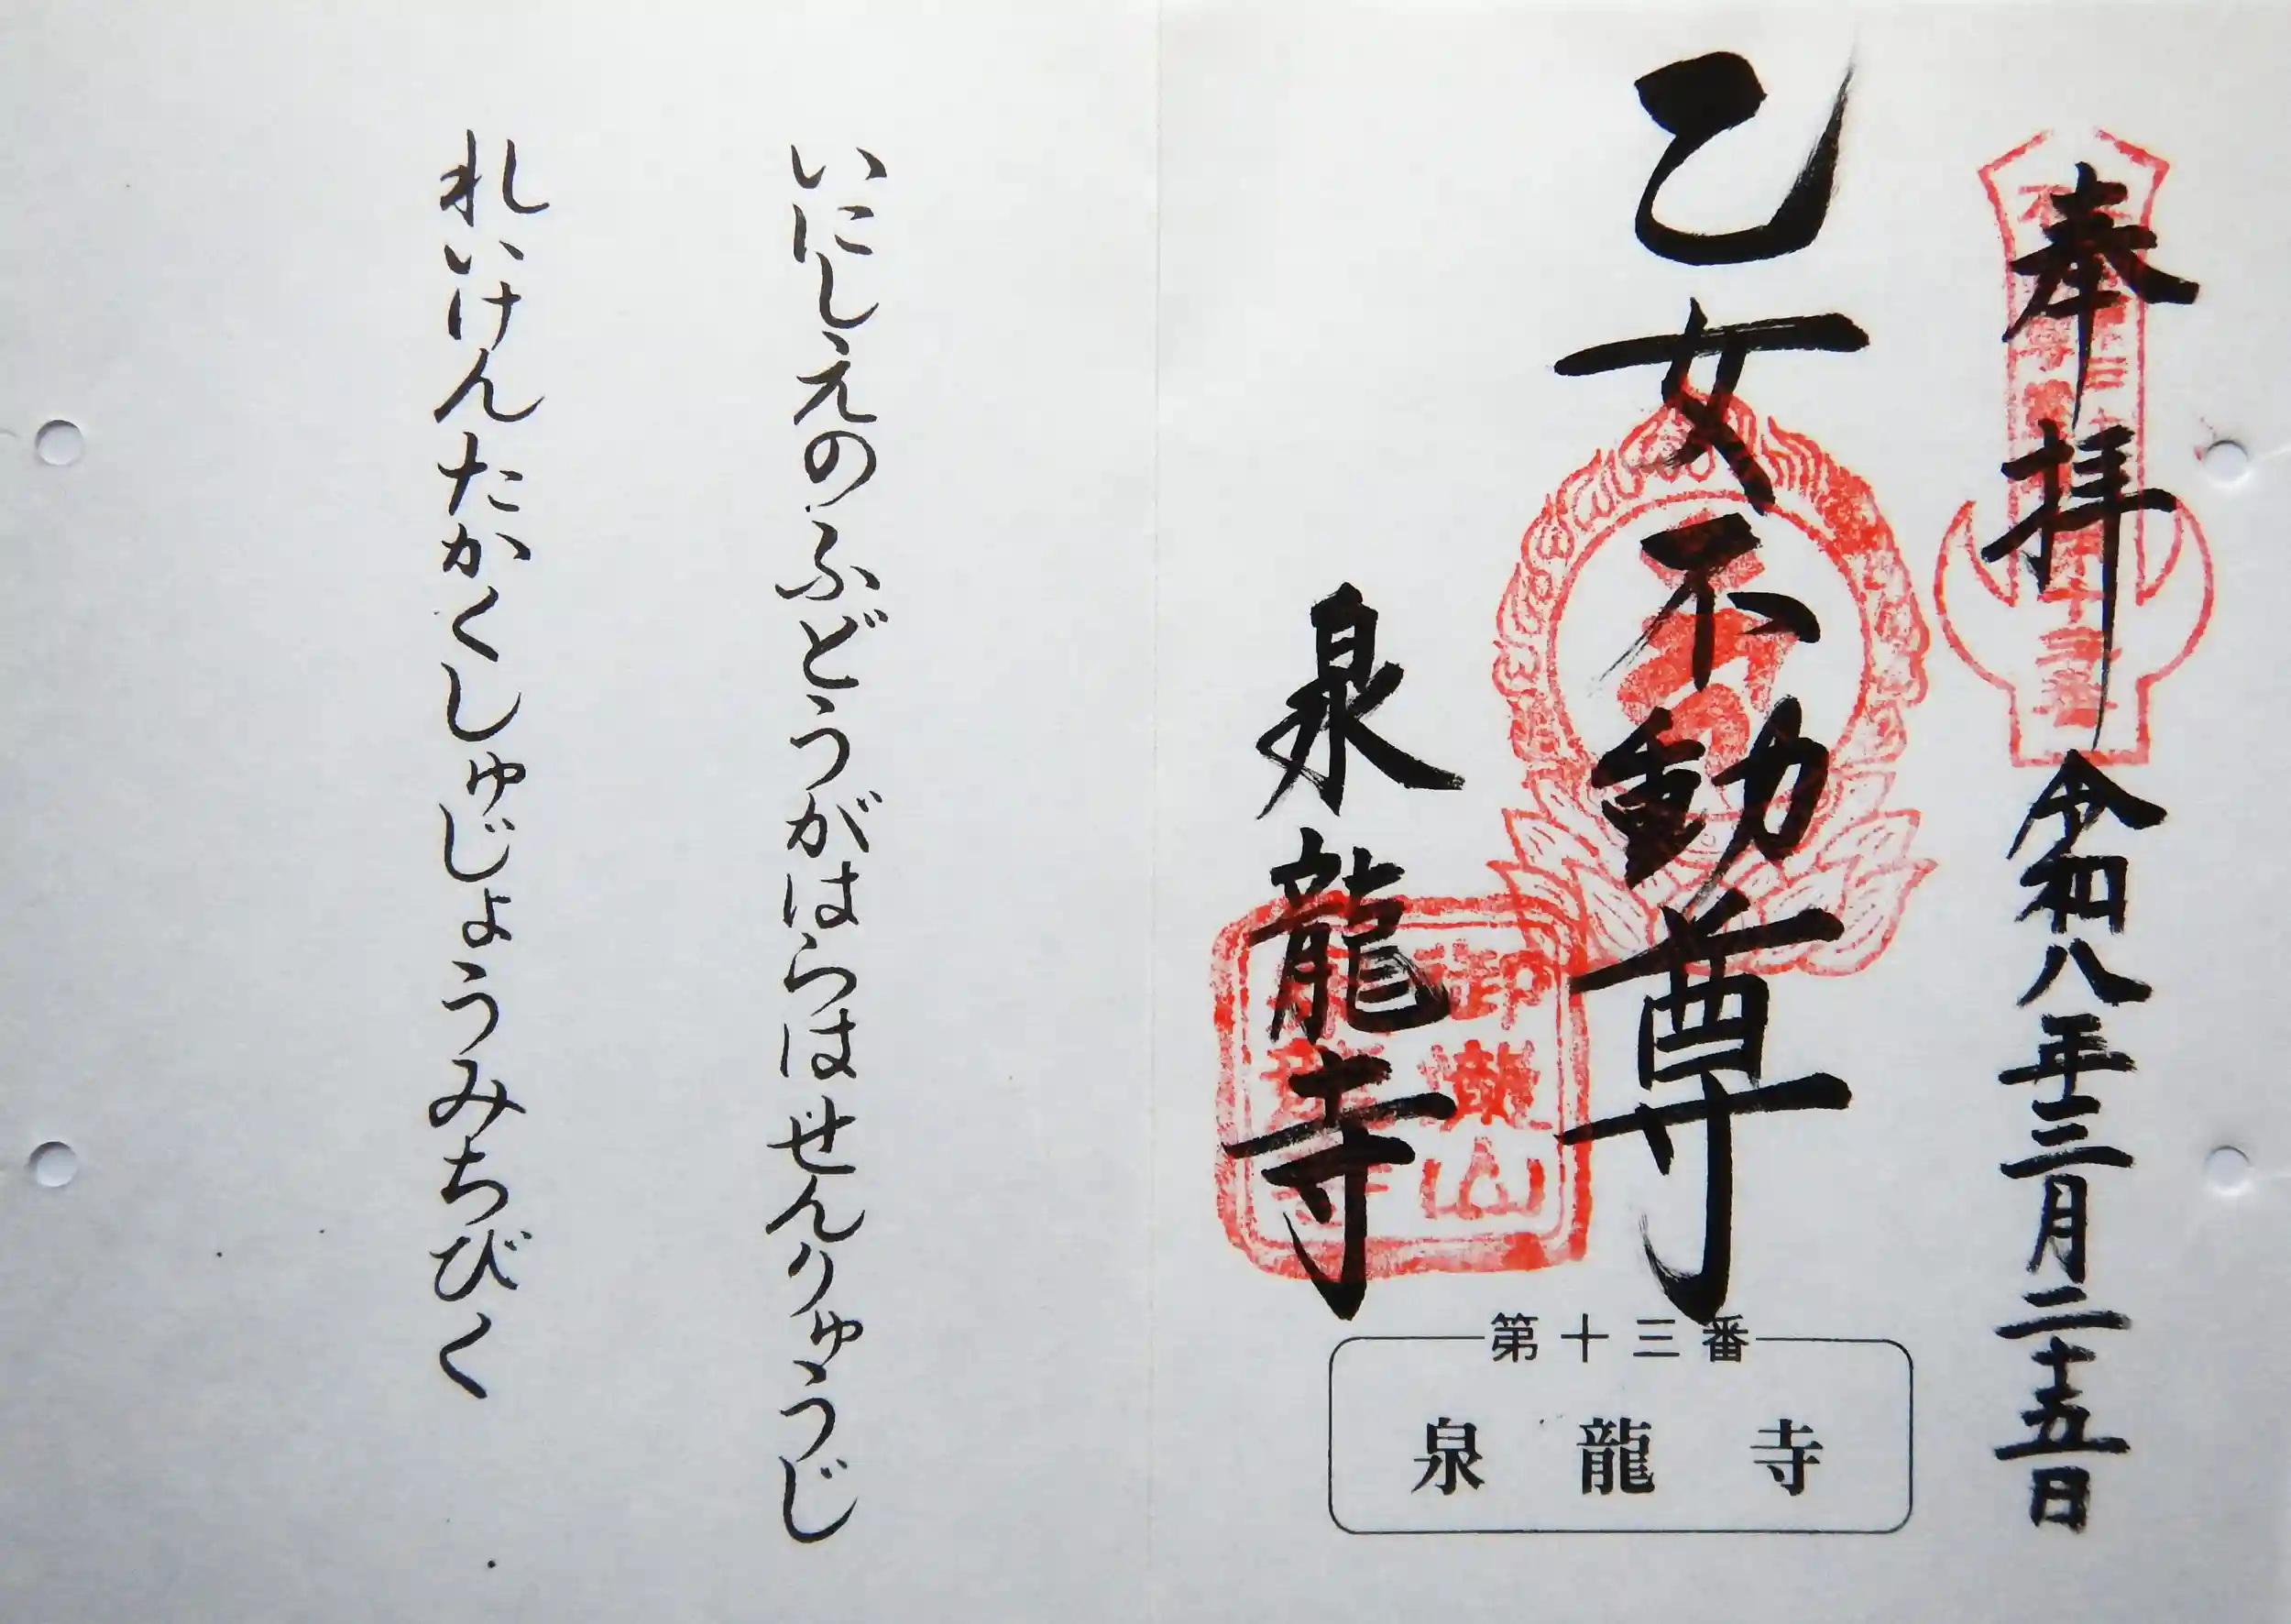 奉拝 令和八年三月二十五日
乙女不動尊
泉龍寺
第十三番
泉龍寺
いにしえのふどうがはらはせんりゅうじ
れいけんたかくしゅじょうみちびく